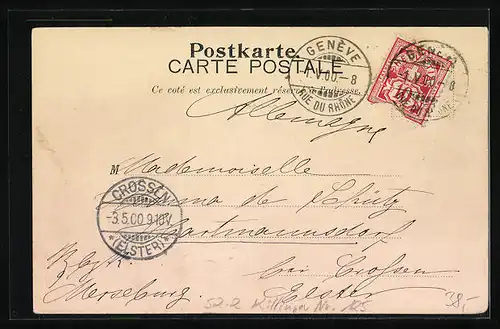 Postkarte.
CARTE POSTALE
Ce coté est exclusivement réservé à l'adresse.
GENÈVE
1.V.00.-8
RUE DU RHÔNE
Allemagne
M Mademoiselle
Emma de Schütz
Hartmannsdorf
bei Crossen
Elster
CROSSEN
-3.5.00.9-10V.
*(ELSTER)*
Merseburg.
52-2 Killinger Nr. 125
38,-